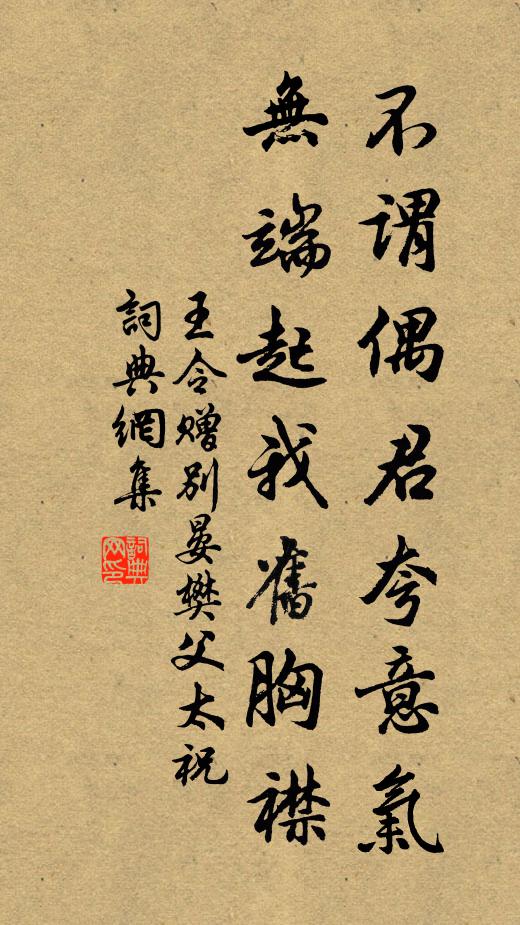 不謂偶君夸意氣
無端起我舊胸襟
王令贈別晏樊父太祝
詞典網集
詞典網印